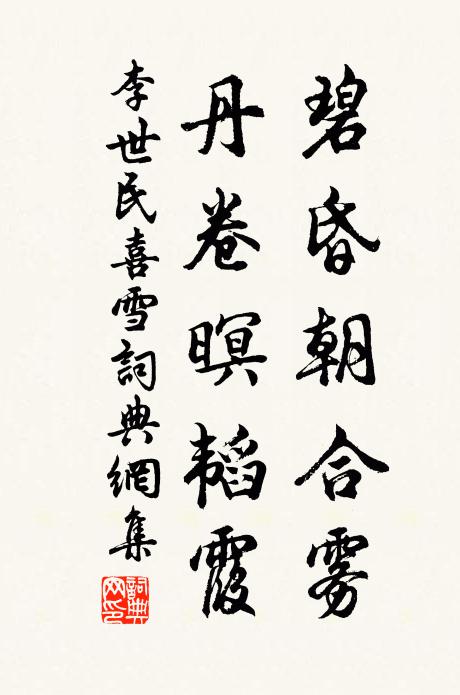 碧昏朝合雾
丹卷暝韬霞
李世民喜雪詞典網集
詞典网印